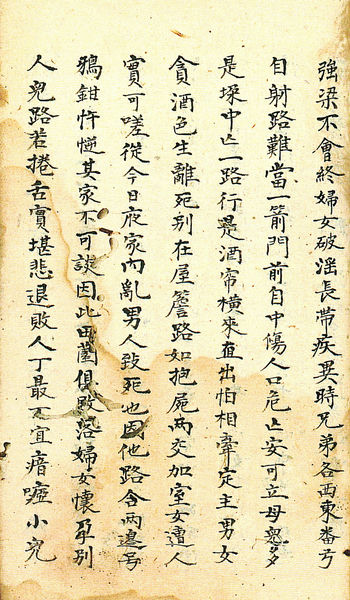 強梁不會終婦女破滛長帶疾異時兄弟各西東畨弓
自射路難當一箭門前自中傷人口危亡安可立母
是垛中亡一路行是酒帘横來直出怕相牽定主男女
貪酒色生離死别在屋簷路如抱屍两交加室女遭人
實可嗟從今日夜家内亂男人致死也因他路含两邉号
鴉鉗忤逆其家不可談因此田園俱敗落婦女懷孕别
人兒路若捲舌實堪悲退敗人丁最不宜瘖瘂小兒